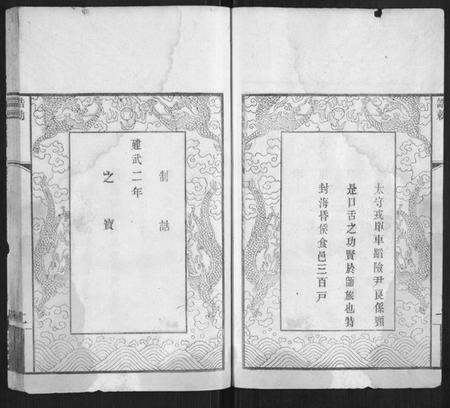 太守戎單車蹈險尹良係頸
是口舌之功賢於師旅也特
封海昏侯食邑三百戸
制誥
建武二年
之寶
誥勅